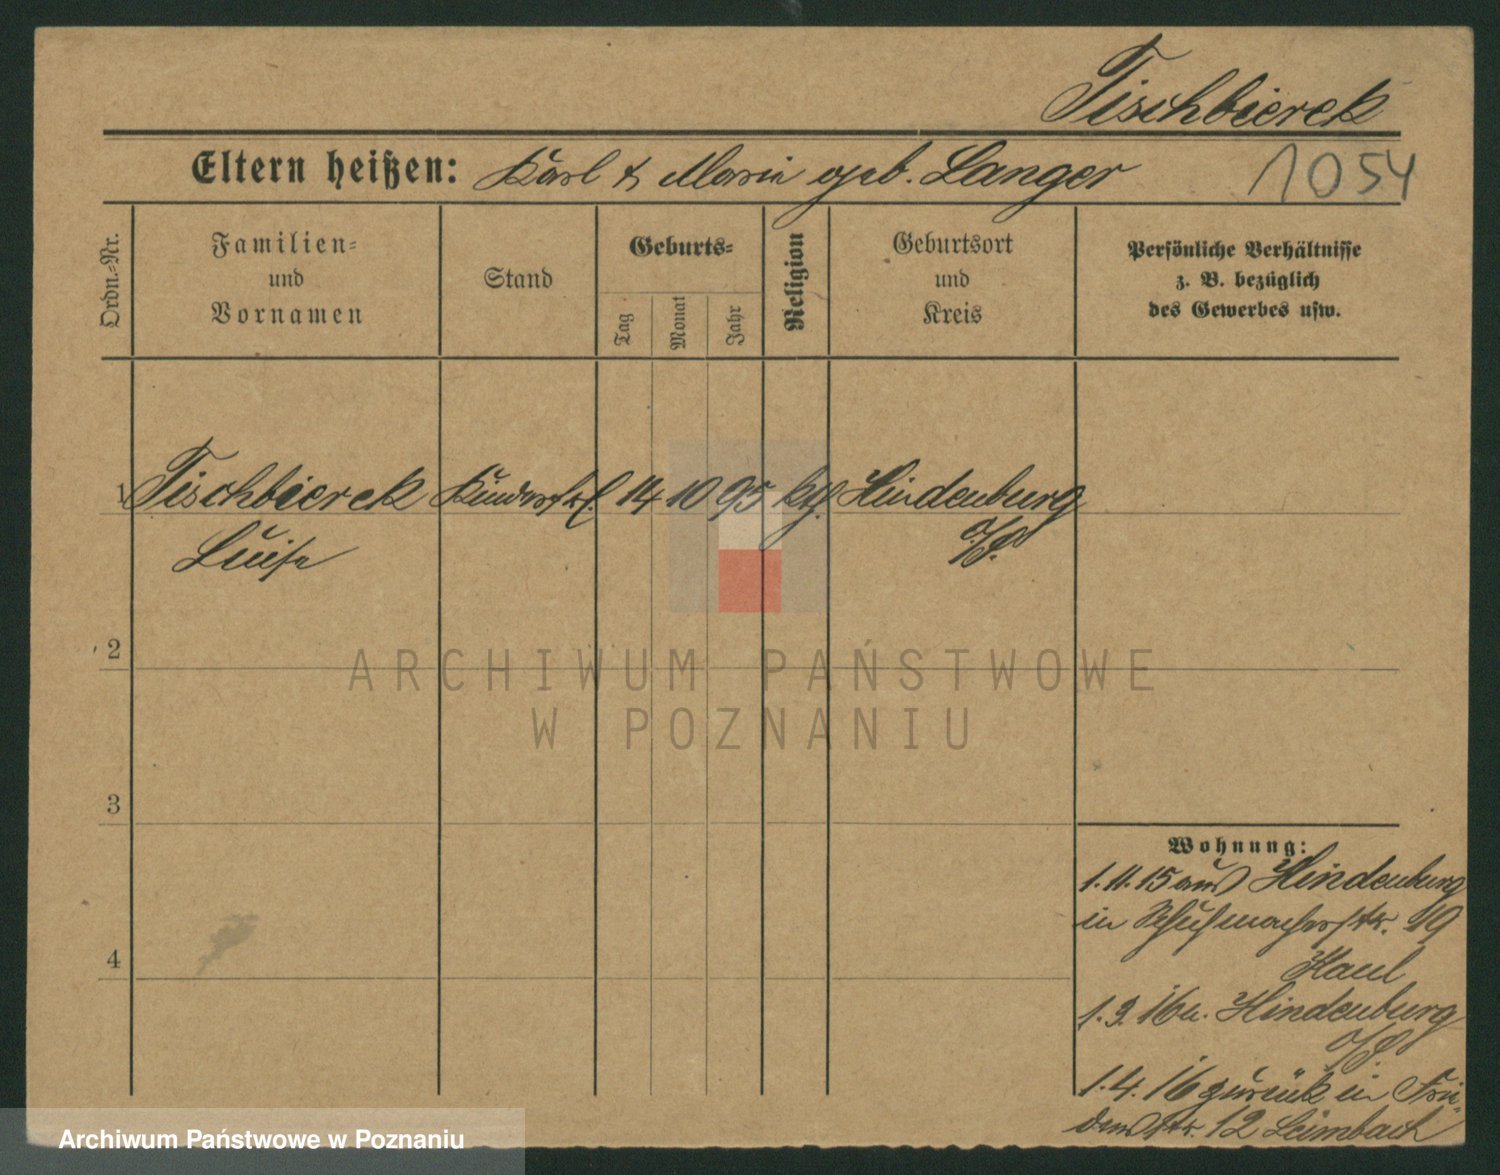 Tischbierek
Eltern heißen: Karl & Marie geb. Langer 1054
Ordn.-Nr.
Familien-
und
Vornamen
Stand
Geburts-
Tag
Monat
Jahr
Religion
Geburtsort
und
Kreis
Persönliche Verhältnisse
z. B. bezüglich
des Gewerbes usw.
1 Tischbierek Kinderfrl. 14 10 95 kth. Hindenburg
Luise O/S.
2
3
4
Wohnung:
1.11.15 aus Hindenburg
in Schuhmacherstr. 19
Haul
1.3.16 n. Hindenburg
O/S.
1.4.16 zurück in Frie-
denstr. 12 Leimbach
ARCHIWUM PAŃSTWOWE
W POZNANIU
Archiwum Państwowe w Poznaniu